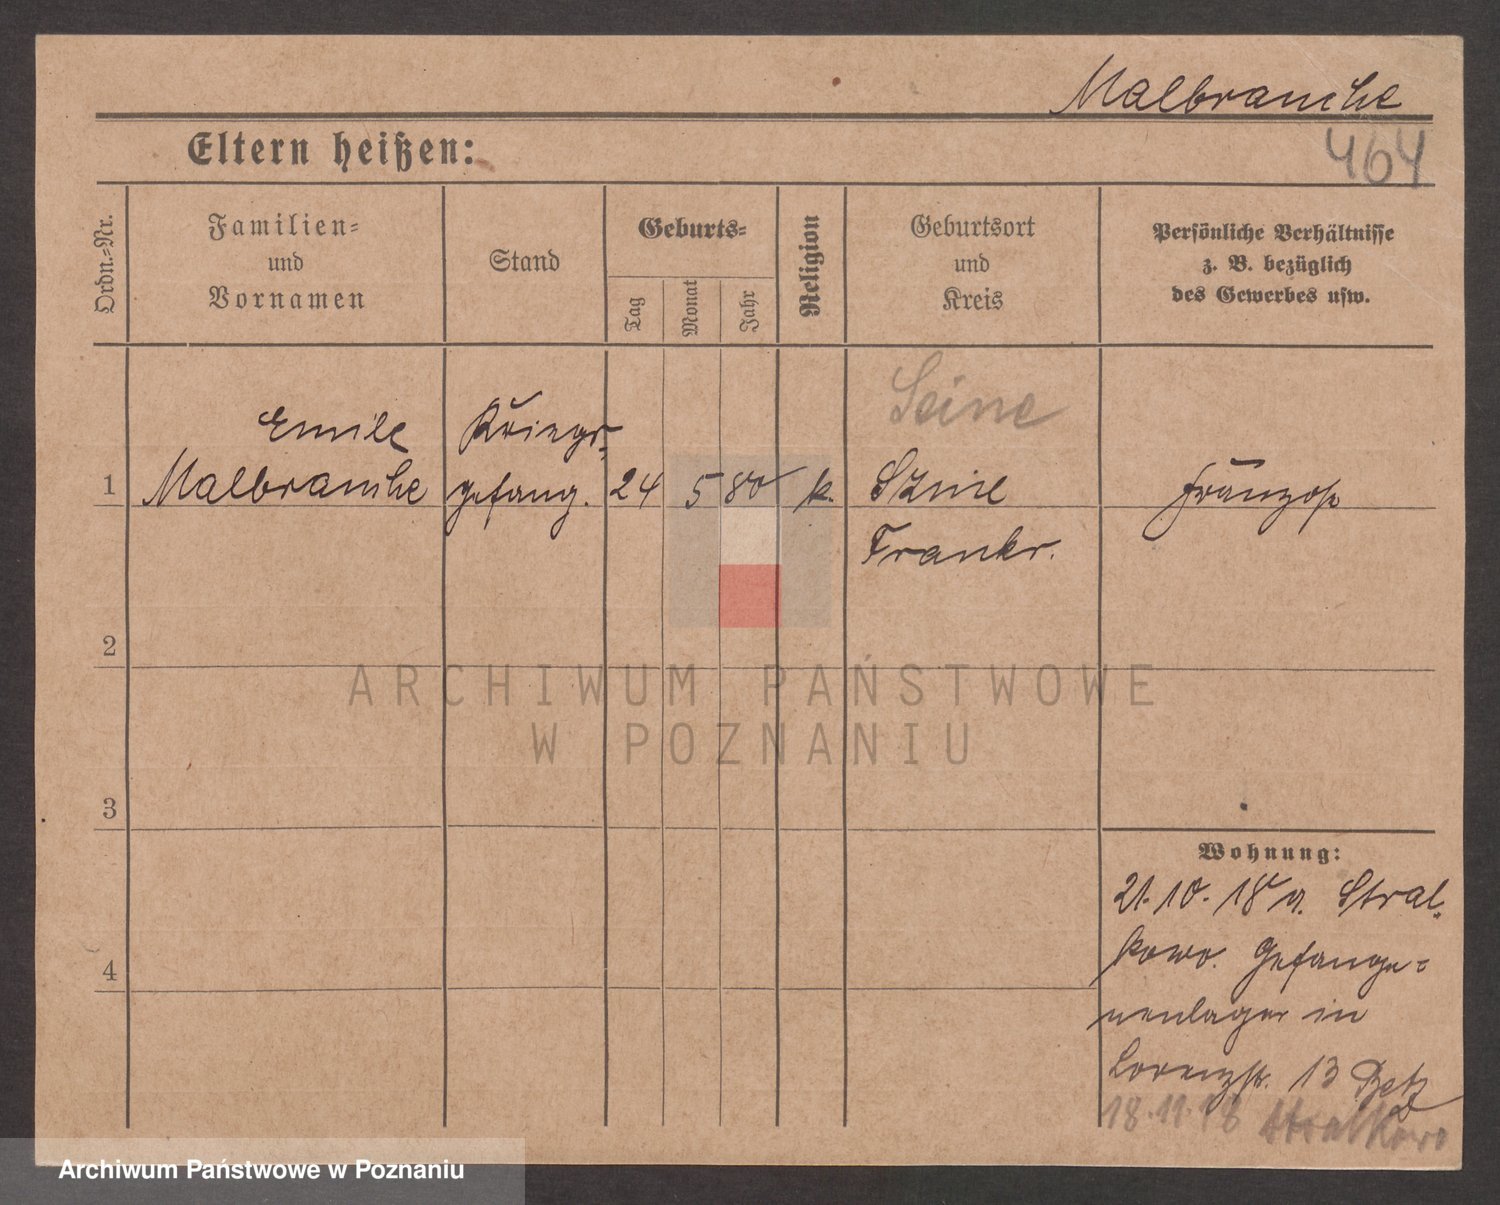 Malbranche
464
Eltern heißen:
Ordn.-Nr.
Familien-
und
Vornamen
Stand
Geburts-
Tag
Monat
Jahr
Religion
Geburtsort
und
Kreis
Persönliche Verhältnisse
z. B. bezüglich
des Gewerbes usw.
Seine
Emile Kriegs-
1 Malbranche gefang. 24 5 80 k. Franzose
Frankr.
2
ARCHIWUM PAŃSTWOWE
W POZNANIU
3
Wohnung:
21.10.18 Stral-
kowo. Gefange-
4
nenlager in
Lorenzstr. 13
18.11.18 Stralkowo
Archiwum Państwowe w Poznaniu